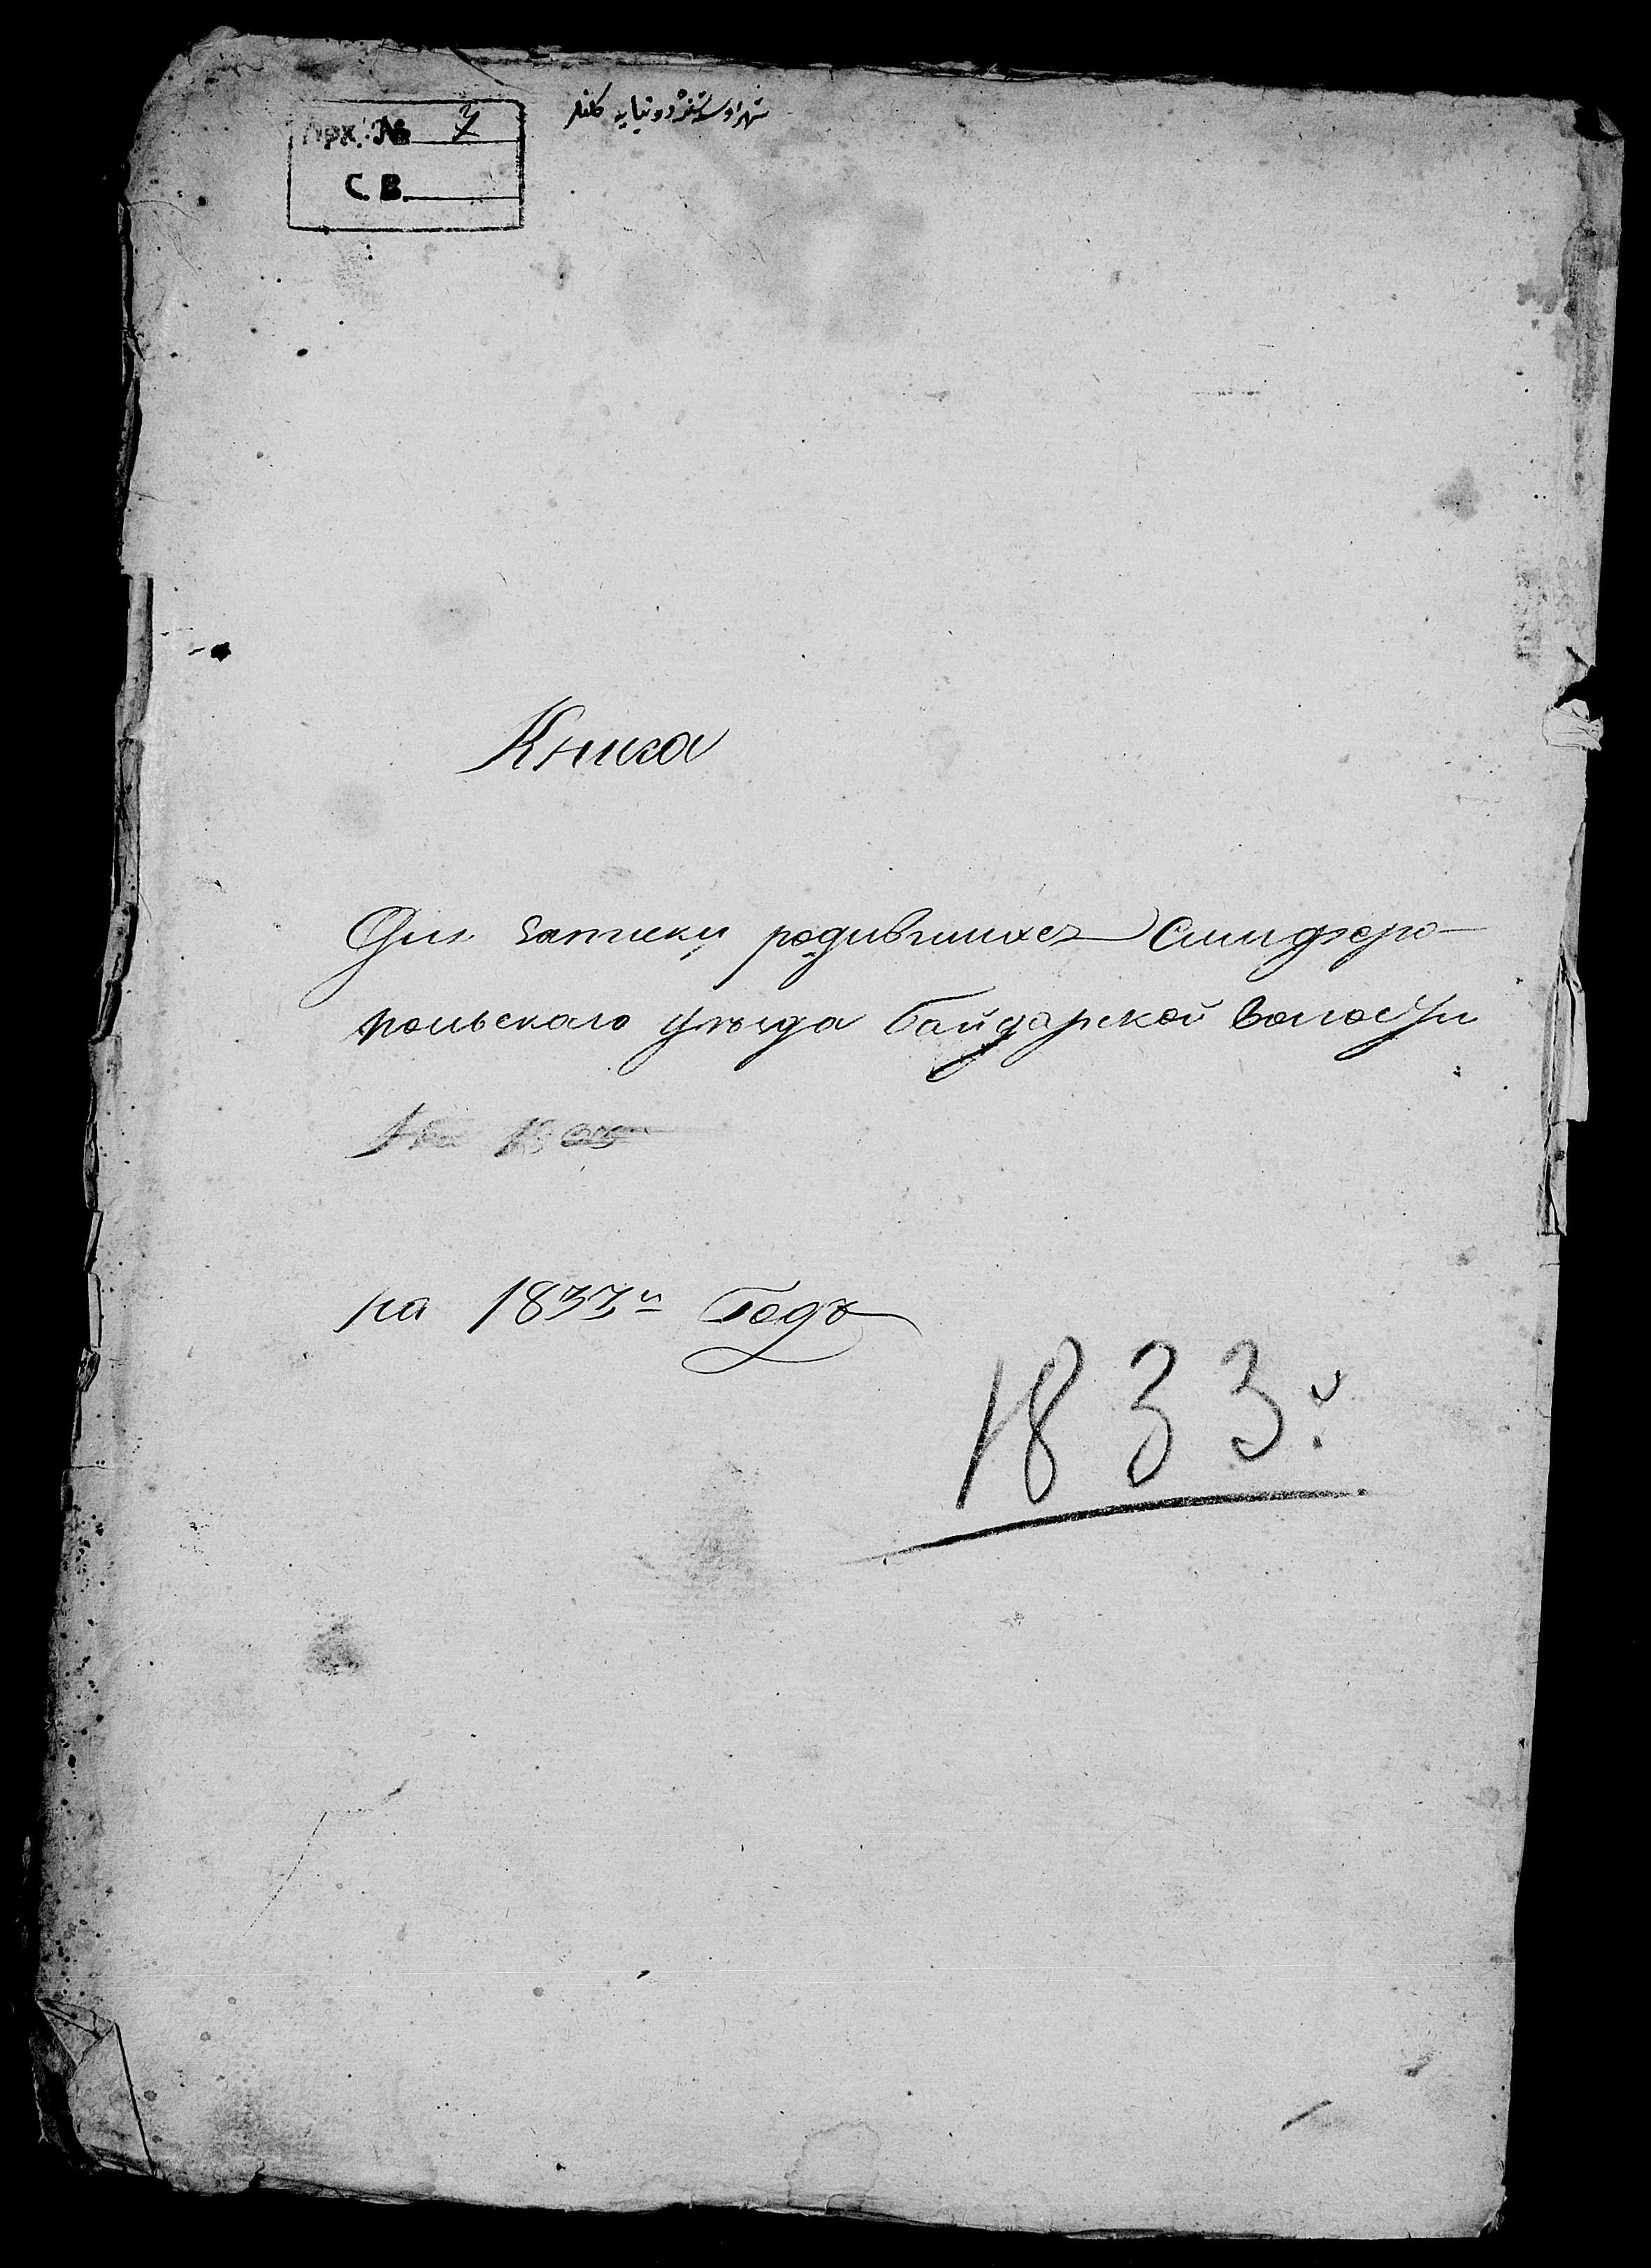 Арх. № 7
С. В.
Книга
Для записки родившихся Симферо-
польскаго уѣзда Байдарской волости
на 1833й Годъ
1833й